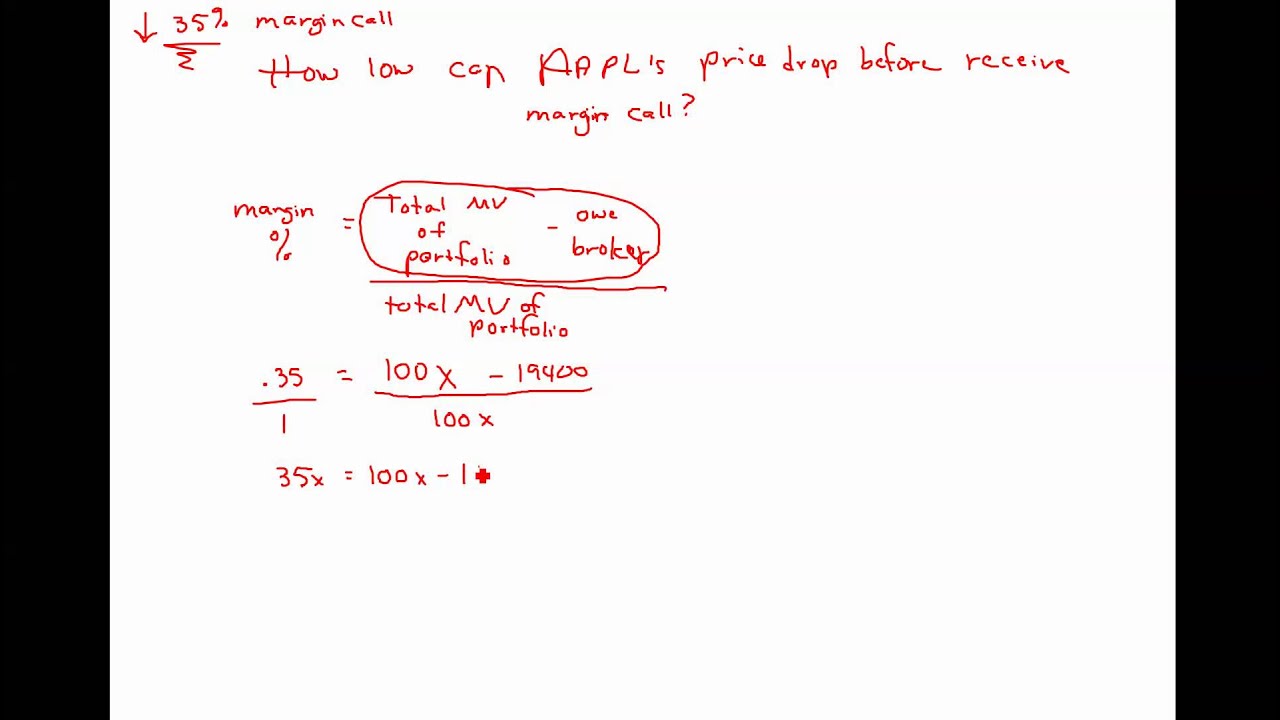 ↓ 35% margin call
How low can AAPL's price drop before receive
margin call?
margin % = Total MV of portfolio - owe broker
total MV of portfolio
.35 = 100x - 19400
1 100x
35x = 100x - 1